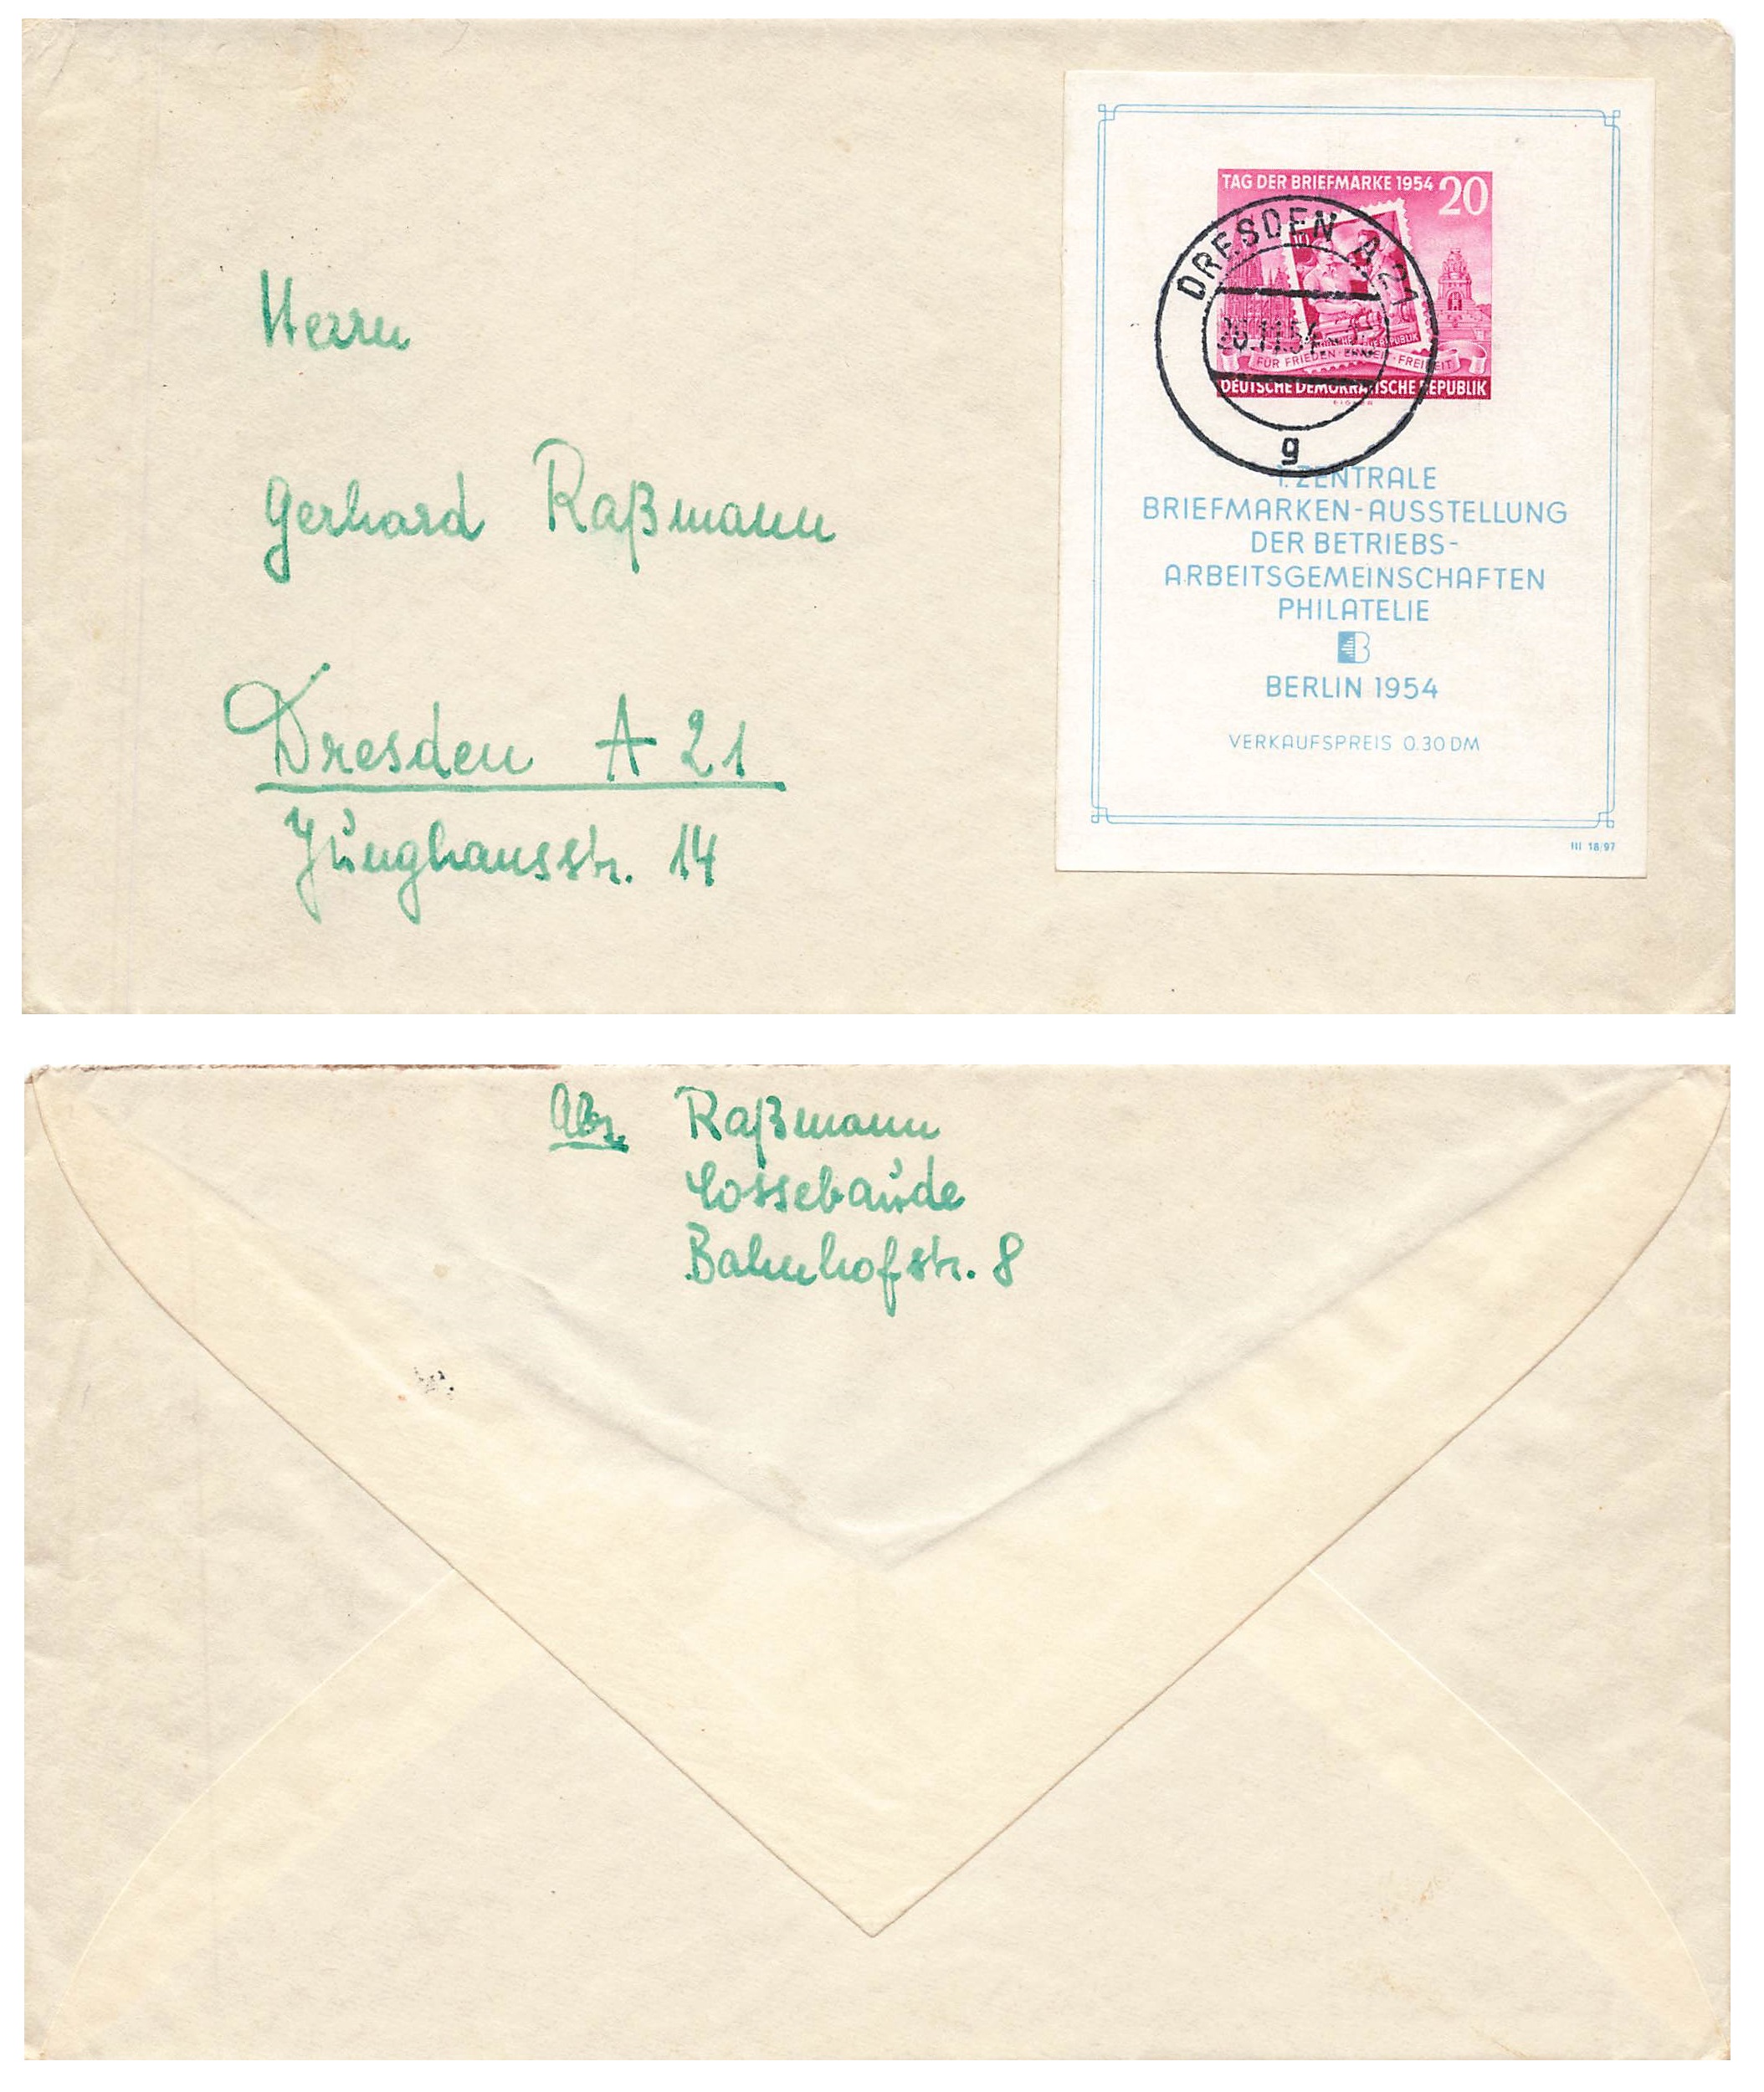 Herrn
Gerhard Raßmann
Dresden A 21
Junghansstr. 14
TAG DER BRIEFMARKE 1954 20
DRESDEN A 21
FÜR FRIEDEN · EINHEIT · FREIHEIT
DEUTSCHE DEMOKRATISCHE REPUBLIK
g
1. ZENTRALE
BRIEFMARKEN-AUSSTELLUNG
DER BETRIEBS-
ARBEITSGEMEINSCHAFTEN
PHILATELIE
B
BERLIN 1954
VERKAUFSPREIS 0.30 DM
III 18/97
Abs. Raßmann
Cossebaude
Bahnhofstr. 8